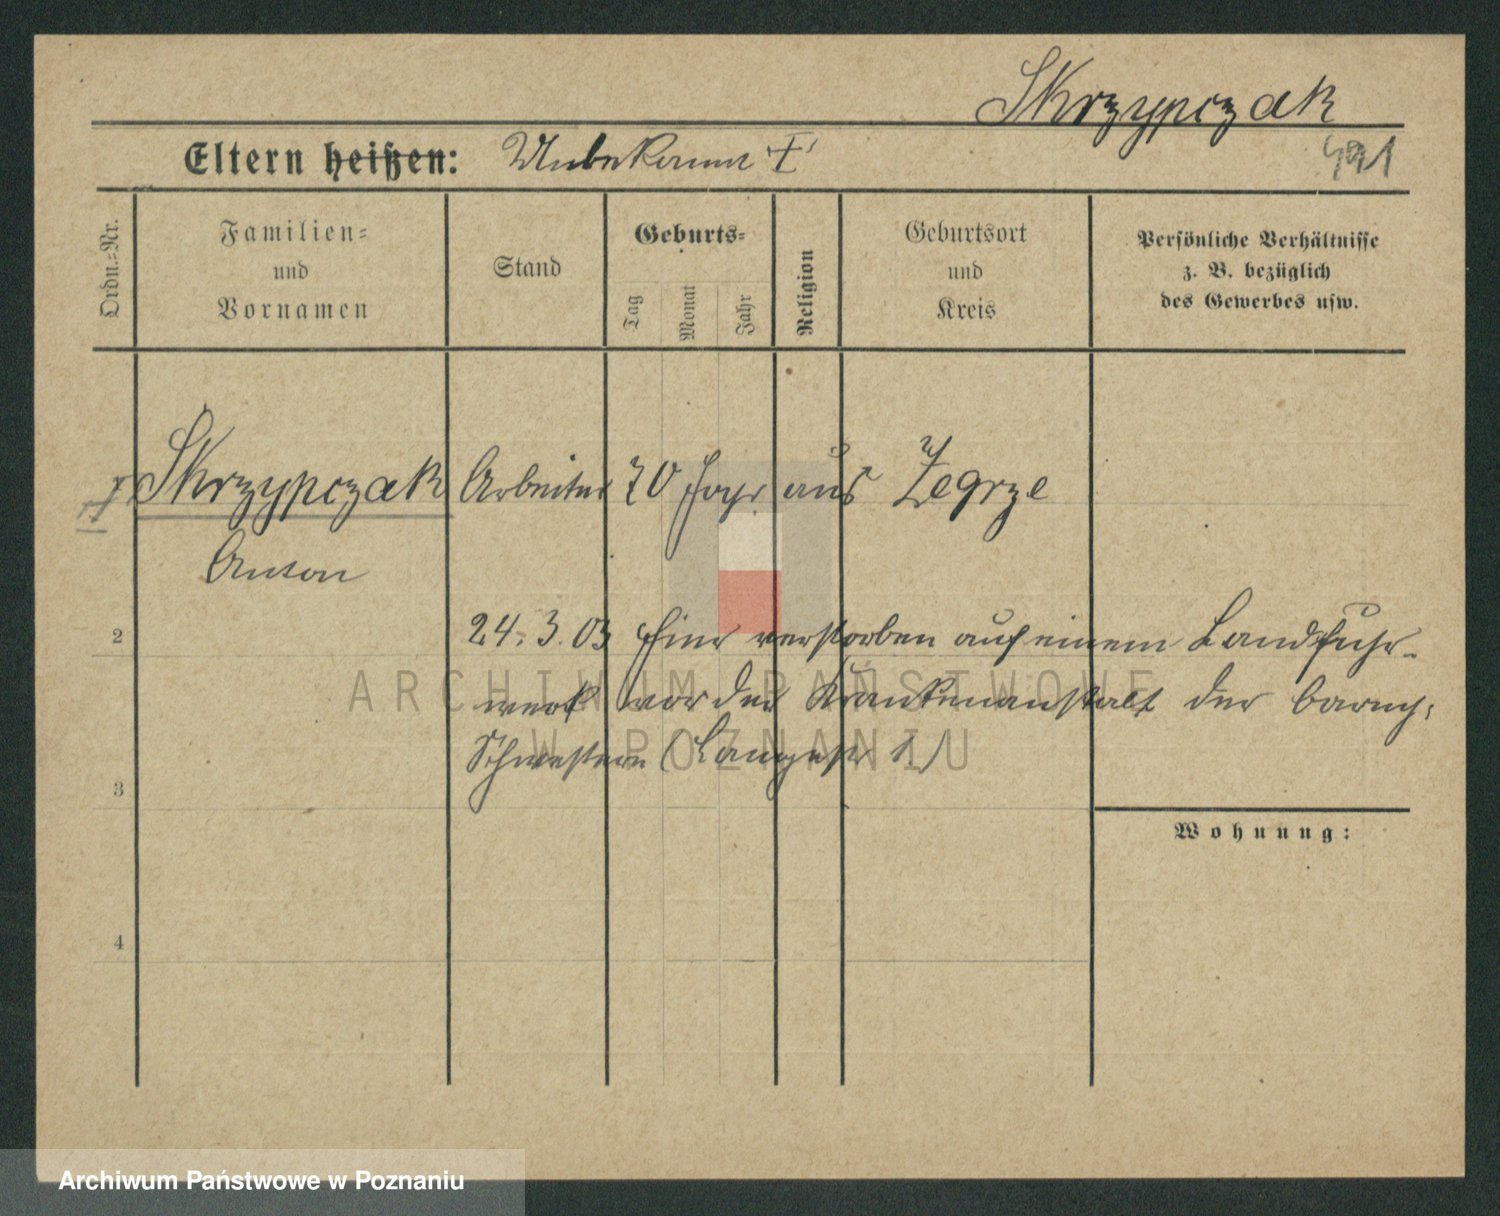 Skrzypczak
Eltern heißen: Unbekannt
491
Ordn.=Nr.
Familien=
und
Vornamen
Stand
Geburts=
Tag
Monat
Jahr
Religion
Geburtsort
und
Kreis
Persönliche Verhältnisse
z. B. bezüglich
des Gewerbes usw.
Skrzypczak Arbeiter 70 Jahr aus Zegrze
Anton
2
24. 3. 03 hier verstorben auf einem Landfuhr-
werk vor der Krankenanstalt der barmh:
Schwestern (Langestr 1)
3
Wohnung:
4
ARCHIWUM PAŃSTWOWE
W POZNANIU
Archiwum Państwowe w Poznaniu